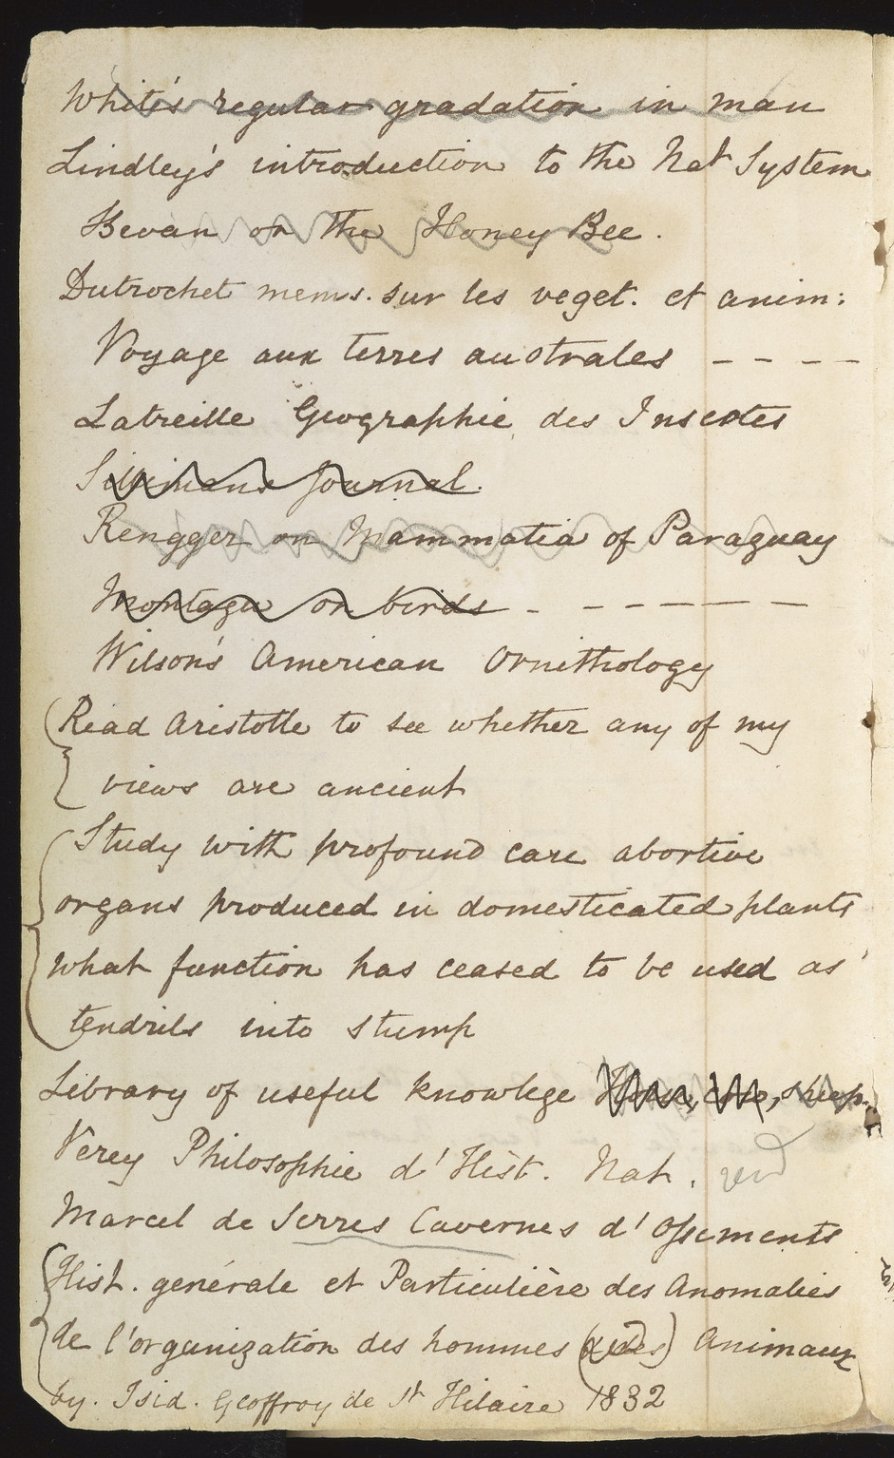 White's regular gradation in man
Lindley's introduction to the Nat System
Bevan on the Honey Bee.
Dutrochet mems. sur les veget. et anim:
Voyage aux terres australes - - - -
Latreille Geographie des Insectes
Silliman's Journal.
Rengger on Mammalia of Paraguay
Montagu on birds - - - - - -
Wilson's American Ornithology
Read Aristotle to see whether any of my
views are ancient
Study with profound care abortive
organs produced in domesticated plants
what function has ceased to be used as
tendrils into stump
Library of useful knowlege Horse, cow, sheep.
Verey Philosophie d' Hist. Nat. read
Marcel de Serres Cavernes d' Ossements
Hist. generale et Particulière des Anomalies
de l'organization des hommes Animaux
by. Isid. Geoffroy de St Hilaire 1832